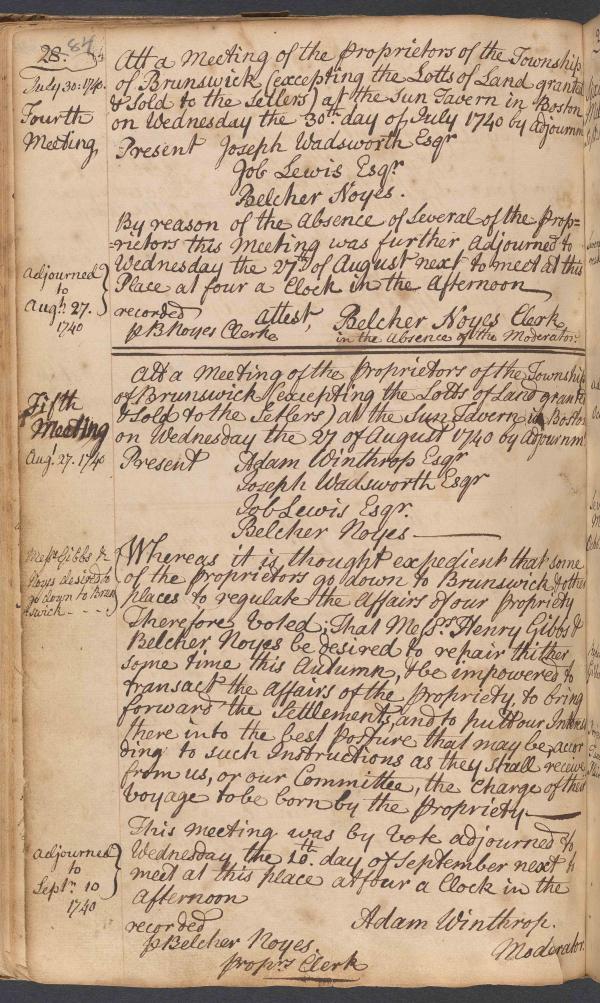 28. 84
July 30: 1740.
Fourth
Meeting,
Att a Meeting of the Proprietors of the Township
of Brunswick (excepting the Lotts of Land granted
& Sold to the Setlers) at the Sun Tavern in Boston,
on Wednesday the 30th day of July 1740 by adjournm
Present Joseph Wadsworth Esqr
Job Lewis Esqr.
Belcher Noyes.
By reason of the Absence of Several of the Prop=
=rietors this Meeting was further Adjourned to
Wednesday the 27th of August next to meet at this
Place at four a Clock in the Afternoon
Adjourned
to
Augt. 27.
1740
recorded attest, Belcher Noyes Clerk
p B Noyes Clerke in the Absence of the Moderator.
Fifth
Meeting
Augt. 27. 1740
Att a Meeting of the Proprietors of the Township
of Brunswick (excepting the Lotts of Land grante
& Sold to the Setlers) at the Sun Tavern in Boston
on Wednesday the 27 of August 1740 by Adjournm
Present Adam Winthrop Esqr
Joseph Wadsworth Esqr
Job Lewis Esqr.
Belcher Noyes
Messrs Gibbs &
Noyes desired to
go down to Brun
swick
Whereas it is thought expedient that some
of the Proprietors go down to Brunswick & other
places to regulate the Affairs of our Propriety
Therefore Voted; That Messrs. Henry Gibbs &
Belcher Noyes be desired to repair thither
some time this Autumn, & be impowered to
transact the Affairs of the Propriety, to bring
forward the Settlements, and to putt our Interest
there into the best Posture that may be, accor
ding to such Instructions as they shall receive
from us, or our Committee, the Charge of their
Voyage to be born by the Propriety
This Meeting was by Vote adjourned to
Wednesday, the 10th. day of September next to
meet at this place at four a Clock in the
Afternoon
Adjourned
to
Septr. 10
1740
recorded Adam Winthrop.
p Belcher Noyes. Moderator.
proprs Clerk